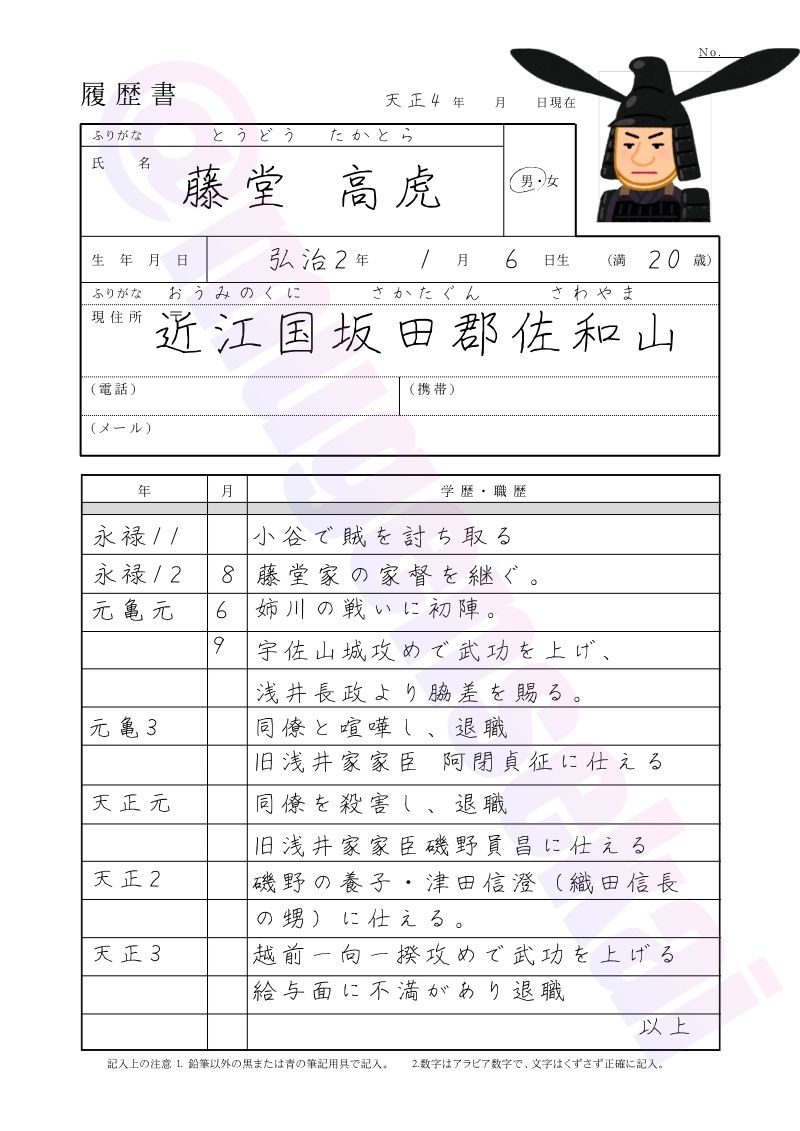 No.
履歴書
天正4 年 月 日現在
ふりがな とうどう たかとら
氏 名 藤堂 高虎
男・女
生 年 月 日 弘治2年 1月 6日生 (満 20 歳)
ふりがな おうみのくに さかたぐん さわやま
現住所 〒 近江国坂田郡佐和山
(電話) (携帯)
(メール)
年 月 学歴・職歴
永禄11 小谷で賊を討ち取る
永禄12 8 藤堂家の家督を継ぐ。
元亀元 6 姉川の戦いに初陣。
9 宇佐山城攻めで武功を上げ、
浅井長政より脇差を賜る。
元亀3 同僚と喧嘩し、退職
旧浅井家家臣 阿閉貞征に仕える
天正元 同僚を殺害し、退職
旧浅井家家臣磯野員昌に仕える
天正2 磯野の養子・津田信澄(織田信長
の甥)に仕える。
天正3 越前一向一揆攻めで武功を上げる
給与面に不満があり退職
以上
記入上の注意 1. 鉛筆以外の黒または青の筆記用具で記入。 2.数字はアラビア数字で、文字はくずさず正確に記入。
@mugensekai